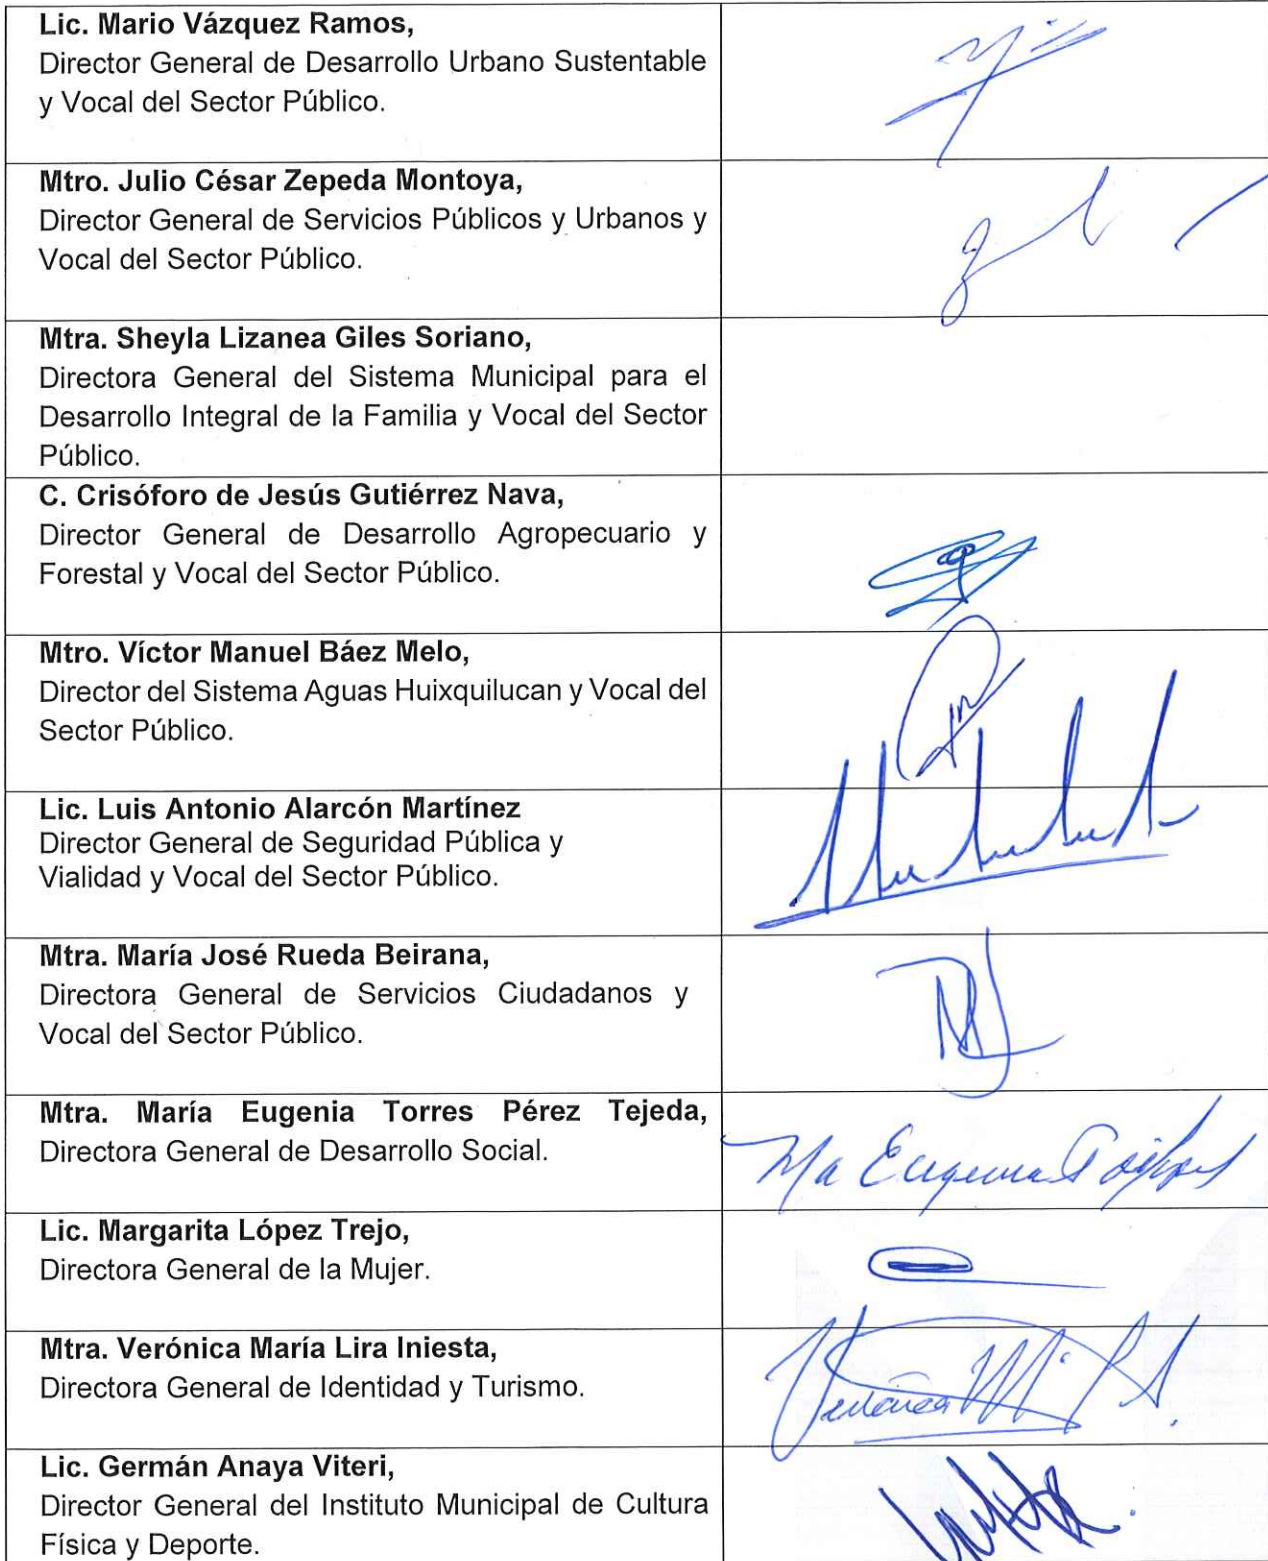 Lic. Mario Vázquez Ramos,
Director General de Desarrollo Urbano Sustentable
y Vocal del Sector Público.
Mtro. Julio César Zepeda Montoya,
Director General de Servicios Públicos y Urbanos y
Vocal del Sector Público.
Mtra. Sheyla Lizanea Giles Soriano,
Directora General del Sistema Municipal para el
Desarrollo Integral de la Familia y Vocal del Sector
Público.
C. Crisóforo de Jesús Gutiérrez Nava,
Director General de Desarrollo Agropecuario y
Forestal y Vocal del Sector Público.
Mtro. Víctor Manuel Báez Melo,
Director del Sistema Aguas Huixquilucan y Vocal del
Sector Público.
Lic. Luis Antonio Alarcón Martínez
Director General de Seguridad Pública y
Vialidad y Vocal del Sector Público.
Mtra. María José Rueda Beirana,
Directora General de Servicios Ciudadanos y
Vocal del Sector Público.
Mtra. María Eugenia Torres Pérez Tejeda,
Directora General de Desarrollo Social.
Ma Eugenia
Lic. Margarita López Trejo,
Directora General de la Mujer.
Mtra. Verónica María Lira Iniesta,
Directora General de Identidad y Turismo.
Lic. Germán Anaya Viteri,
Director General del Instituto Municipal de Cultura
Física y Deporte.